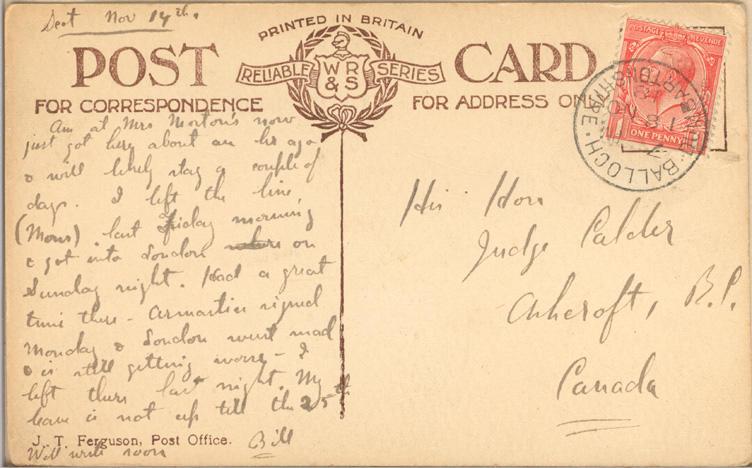 Scot Nov 14th.
PRINTED IN BRITAIN
POST CARD
RELIABLE WR & S SERIES
FOR CORRESPONDENCE
FOR ADDRESS ON
POSTAGE REVENUE
ONE PENNY
BALLOCH
Am at Mrs Morton's now
just got here about an hr ago
& will likely stay a couple of
days. I left the line
(Mons) last Friday morning
& got into London on
Sunday night. Had a great
time there - Armistice signed
Monday & London went mad
& is still getting worse - I
left there last night. My
leave is not up till the 25th
J. T. Ferguson, Post Office.
Bill
Will write soon
His Hon
Judge Calder
Ashcroft, B.C.
Canada